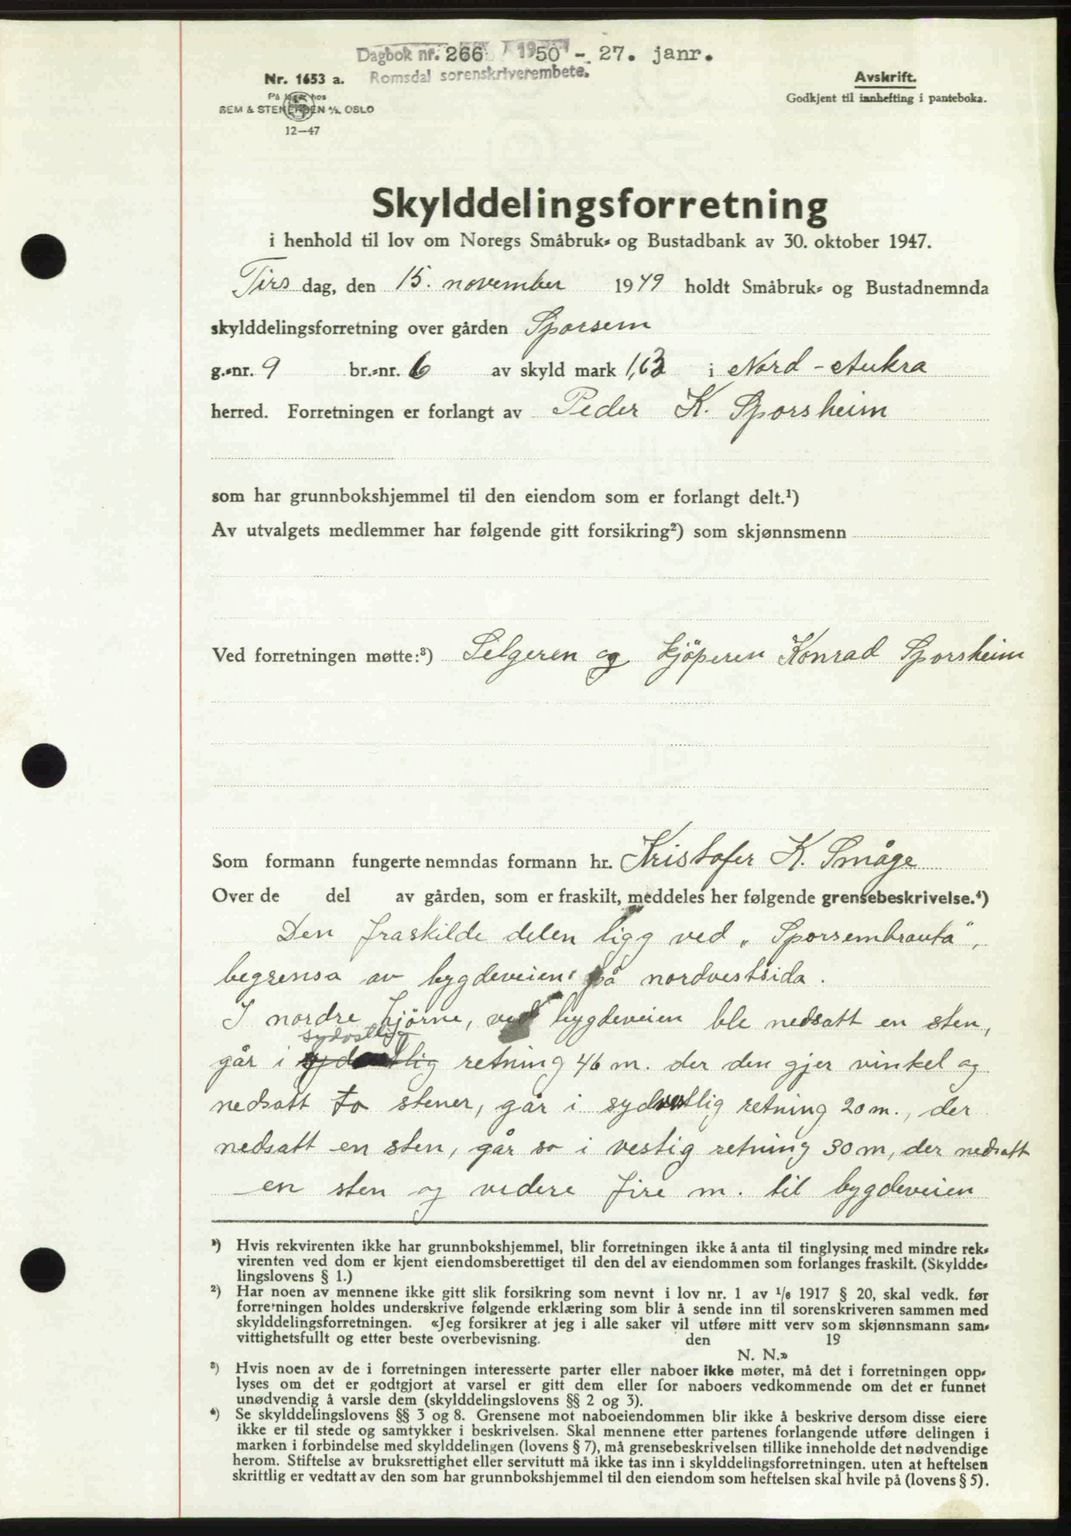 Dagbok nr. 266 1950 - 27. janr.
Romsdal sorenskriverembete.
Nr. 1653 a.
På lager hos
SEM & STENERSEN A/S, OSLO
12—47
Avskrift.
Godkjent til innhefting i panteboka.
Skylddelingsforretning
i henhold til lov om Noregs Småbruk- og Bustadbank av 30. oktober 1947.
Tirsdag, den 15. november 1949 holdt Småbruk- og Bustadnemnda
skylddelingsforretning over gården Sporsem
g.-nr. 9 br.-nr. 6 av skyld mark 1,63 i Nord-Aukra
herred. Forretningen er forlangt av Peder K. Sporsheim
som har grunnbokshjemmel til den eiendom som er forlangt delt.¹)
Av utvalgets medlemmer har følgende gitt forsikring²) som skjønnsmenn
Ved forretningen møtte:³) Selgeren og kjöperen Konrad Sporsheim
Som formann fungerte nemndas formann hr. Kristofer K. Småge
Over de del av gården, som er fraskilt, meddeles her følgende grensebeskrivelse.⁴)
Den fraskilde delen ligg ved „Sporsembrauta“,
begrensa av bygdeveien på nordvestsida.
I nordre hjörne, ved bygdeveien ble nedsatt en sten,
sydostlig
går i retning 46 m. der den gjer vinkel og
nedsatt to stener, går i sydvestlig retning 20 m., der
nedsatt en sten, går so i vestig retning 30 m, der nedsatt
en sten og videre fire m. til bygdeveien
¹) Hvis rekvirenten ikke har grunnbokshjemmel, blir forretningen ikke å anta til tinglysing med mindre rek-
virenten ved dom er kjent eiendomsberettiget til den del av eiendommen som forlanges fraskilt. (Skyldde-
lingslovens § 1.)
²) Har noen av mennene ikke gitt slik forsikring som nevnt i lov nr. 1 av 1/6 1917 § 20, skal vedk. før
forretningen holdes underskrive følgende erklæring som blir å sende inn til sorenskriveren sammen med
skylddelingsforretningen. «Jeg forsikrer at jeg i alle saker vil utføre mitt verv som skjønnsmann sam-
vittighetsfullt og etter beste overbevisning. den 19
N. N.»
³) Hvis noen av de i forretningen interesserte parter eller naboer ikke møter, må det i forretningen opp-
lyses om det er godtgjort at varsel er gitt dem eller for naboers vedkommende om det er funnet
unødvendig å varsle dem (skylddelingslovens §§ 2 og 3).
⁴) Se skylddelingslovens §§ 3 og 8. Grensene mot naboeiendommen blir ikke å beskrive dersom disse eiere
ikke er til stede og samtykker i beskrivelsen. Skal mennene etter partenes forlangende utføre delingen i
marken i forbindelse med skylddelingen (lovens § 7), må grensebeskrivelsen tillike inneholde det nødvendige
herom. Stiftelse av bruksrettighet eller servitutt må ikke tas inn i skylddelingsforretningen. uten at heftelsen
skrittlig er vedtatt av den som har grunnbokshjemmel til den eiendom som heftelsen skal hvile på (lovens § 5).